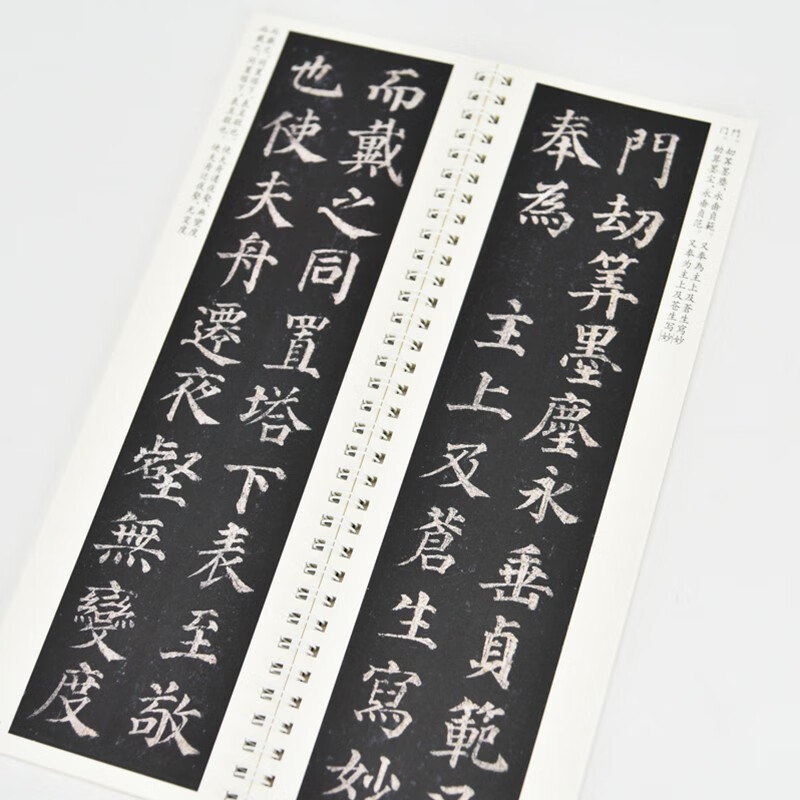 門，劫筭墨塵，永垂貞範。又奉為主上及蒼生寫妙
门，劫算墨尘，永垂贞范。又奉为主上及苍生写妙
門劫筭墨塵永垂貞範又
奉為 主上及蒼生寫妙
而戴之同置塔下表至敬
也使夫舟遷夜壑無變度
而戴之，同置塔下，表至敬也。使夫舟遷夜壑，無變度
而戴之，同置塔下，表至敬也。使夫舟迁夜壑，无变度